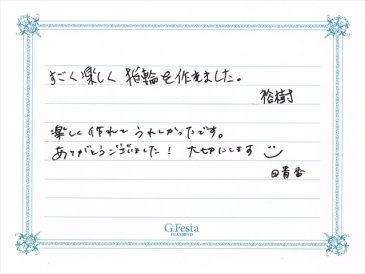 すごく楽しく指輪を作れました。
裕樹
楽しく作れて うれしかったです。
ありがとうございました! 大切にします
G.Festa
DIAMOND